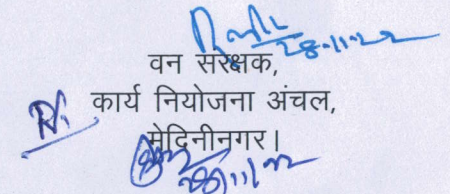 28-11-22
वन संरक्षक,
कार्य नियोजना अंचल,
मेदिनीनगर।